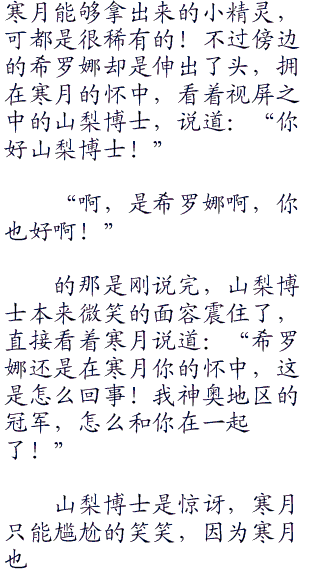 寒月能够拿出来的小精灵，
可都是很稀有的！不过傍边
的希罗娜却是伸出了头，拥
在寒月的怀中，看着视屏之
中的山梨博士，说道：“你
好山梨博士！”
“啊，是希罗娜啊，你
也好啊！”
的那是刚说完，山梨博
士本来微笑的面容震住了，
直接看着寒月说道：“希罗
娜还是在寒月你的怀中，这
是怎么回事！我神奥地区的
冠军，怎么和你在一起
了！”
山梨博士是惊讶，寒月
只能尴尬的笑笑，因为寒月
也